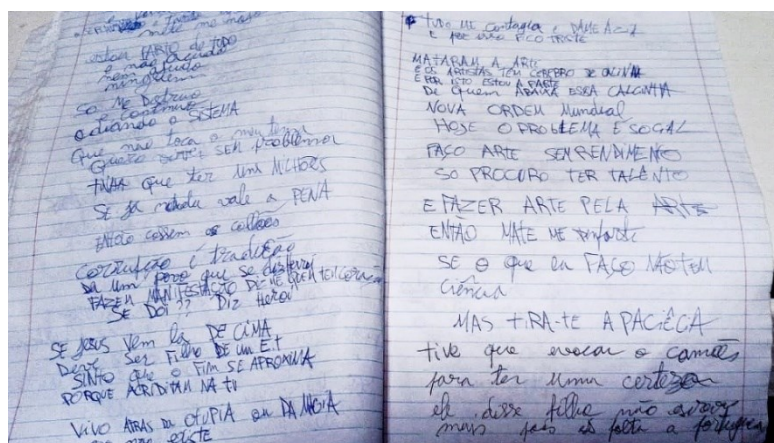 mete no mas
estou FARTO de TUDO
e não ajudo
ninguém
SO ME DISTRUO
e continuo
odiando o SISTEMA
Que não toca o meu tema
Quero SEM problemas
TINHA que ter UNS MLHORS
SE já nada vale a PENA
ENTÃO cossem os colhoes
corrupção é tradição
DA um povo que se
FAZEM MANIFESTAÇÃO DIZ-ME QUEM TEM coração
SE DOI?? DIZ Heroi
SE JESUS Vem lá DE CIMA
Deve SER FILHO DE UM E.T
SINTO que o FIM SE APROXIMA
PORQUE ACRIDITAM NA tv
VIVO ATRAS DA OTUPIA OU DA MAGIA
não existe
TUDO ME contagia e DAME AZIA
E POR ISSO FICO TRISTE
MATARAM A ARTE
E OS ARTISTAS TEM CEREBRO DE GALINHA
E POR ISTO ESTOU A PARTE
De Quem ABAIXA ESSA CALCINHA
NOVA ORDEM MUNDIAL
HOJE O PROBLEMA E SOCIAL
FAÇO ARTE SEM RENDIMENTO
SO PROCURO TER TALENTO
E FAZER ARTE PELA ARTE
ENTÃO MATE ME
SE O que eu FAÇO NÃO TEM
Ciência
MAS TIRA-TE A PACIÊCA
tive que evocar o camões
para ter uma certeza
ele disse filho não
mais pois só falta a